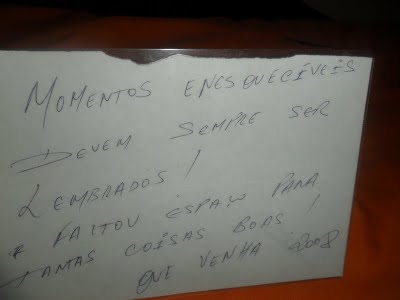 MOMENTOS ENESQUECÍVEIS
DEVEM SEMPRE SER
LEMBRADOS!
* FALTOU ESPAÇO PARA
TANTAS COISAS BOAS!
QUE VENHA 2008